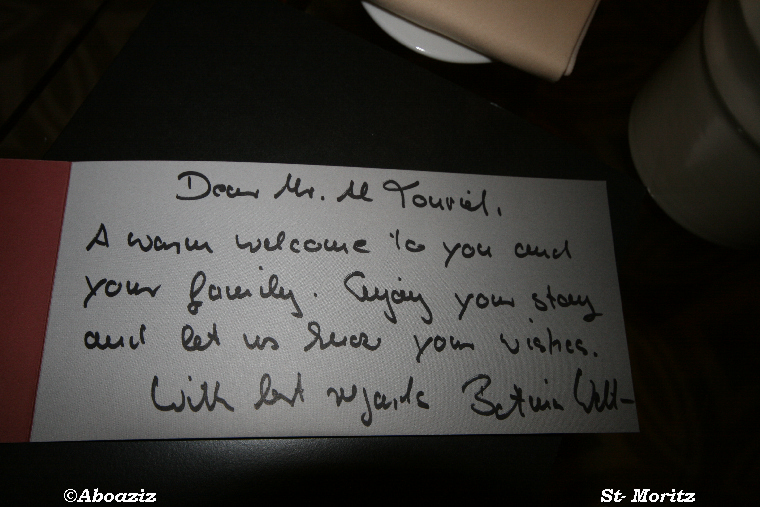 Dear Mr. Al Touriel,
A warm welcome to you and
your family. Enjoy your stay
and let us know your wishes.
With best regards Bettina
©Aboaziz
St- Moritz